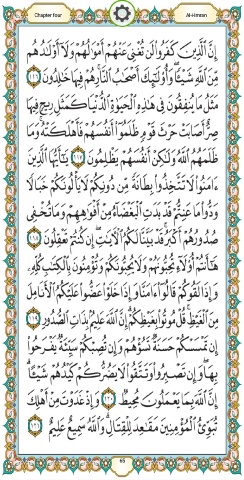 Chapter four
Al-Imran
إِنَّ ٱلَّذِينَ كَفَرُوا۟ لَن تُغْنِىَ عَنْهُمْ أَمْوَٰلُهُمْ وَلَآ أَوْلَٰدُهُم
مِّنَ ٱللَّهِ شَيْـًٔا ۖ وَأُو۟لَٰٓئِكَ أَصْحَٰبُ ٱلنَّارِ ۚ هُمْ فِيهَا خَٰلِدُونَ ١١٦
مَثَلُ مَا يُنفِقُونَ فِى هَٰذِهِ ٱلْحَيَوٰةِ ٱلدُّنْيَا كَمَثَلِ رِيحٍ فِيهَا
صِرٌّ أَصَابَتْ حَرْثَ قَوْمٍ ظَلَمُوٓا۟ أَنفُسَهُمْ فَأَهْلَكَتْهُ ۚ وَمَا
ظَلَمَهُمُ ٱللَّهُ وَلَٰكِنْ أَنفُسَهُمْ يَظْلِمُونَ ١١٧ يَٰٓأَيُّهَا ٱلَّذِينَ
ءَامَنُوا۟ لَا تَتَّخِذُوا۟ بِطَانَةً مِّن دُونِكُمْ لَا يَأْلُونَكُمْ خَبَالًا
وَدُّوا۟ مَا عَنِتُّمْ قَدْ بَدَتِ ٱلْبَغْضَآءُ مِنْ أَفْوَٰهِهِمْ وَمَا تُخْفِى
صُدُورُهُمْ أَكْبَرُ ۚ قَدْ بَيَّنَّا لَكُمُ ٱلْـَٔايَٰتِ ۖ إِن كُنتُمْ تَعْقِلُونَ ١١٨
هَٰٓأَنتُمْ أُو۟لَآءِ تُحِبُّونَهُمْ وَلَا يُحِبُّونَكُمْ وَتُؤْمِنُونَ بِٱلْكِتَٰبِ كُلِّهِۦ
وَإِذَا لَقُوكُمْ قَالُوٓا۟ ءَامَنَّا وَإِذَا خَلَوْا۟ عَضُّوا۟ عَلَيْكُمُ ٱلْأَنَامِلَ
مِنَ ٱلْغَيْظِ ۚ قُلْ مُوتُوا۟ بِغَيْظِكُمْ ۗ إِنَّ ٱللَّهَ عَلِيمٌۢ بِذَاتِ ٱلصُّدُورِ ١١٩
إِن تَمْسَسْكُمْ حَسَنَةٌ تَسُؤْهُمْ وَإِن تُصِبْكُمْ سَيِّئَةٌ يَفْرَحُوا۟
بِهَا ۖ وَإِن تَصْبِرُوا۟ وَتَتَّقُوا۟ لَا يَضُرُّكُمْ كَيْدُهُمْ شَيْـًٔا ۗ
إِنَّ ٱللَّهَ بِمَا يَعْمَلُونَ مُحِيطٌ ١٢٠ وَإِذْ غَدَوْتَ مِنْ أَهْلِكَ
تُبَوِّئُ ٱلْمُؤْمِنِينَ مَقَٰعِدَ لِلْقِتَالِ ۗ وَٱللَّهُ سَمِيعٌ عَلِيمٌ ١٢١
65